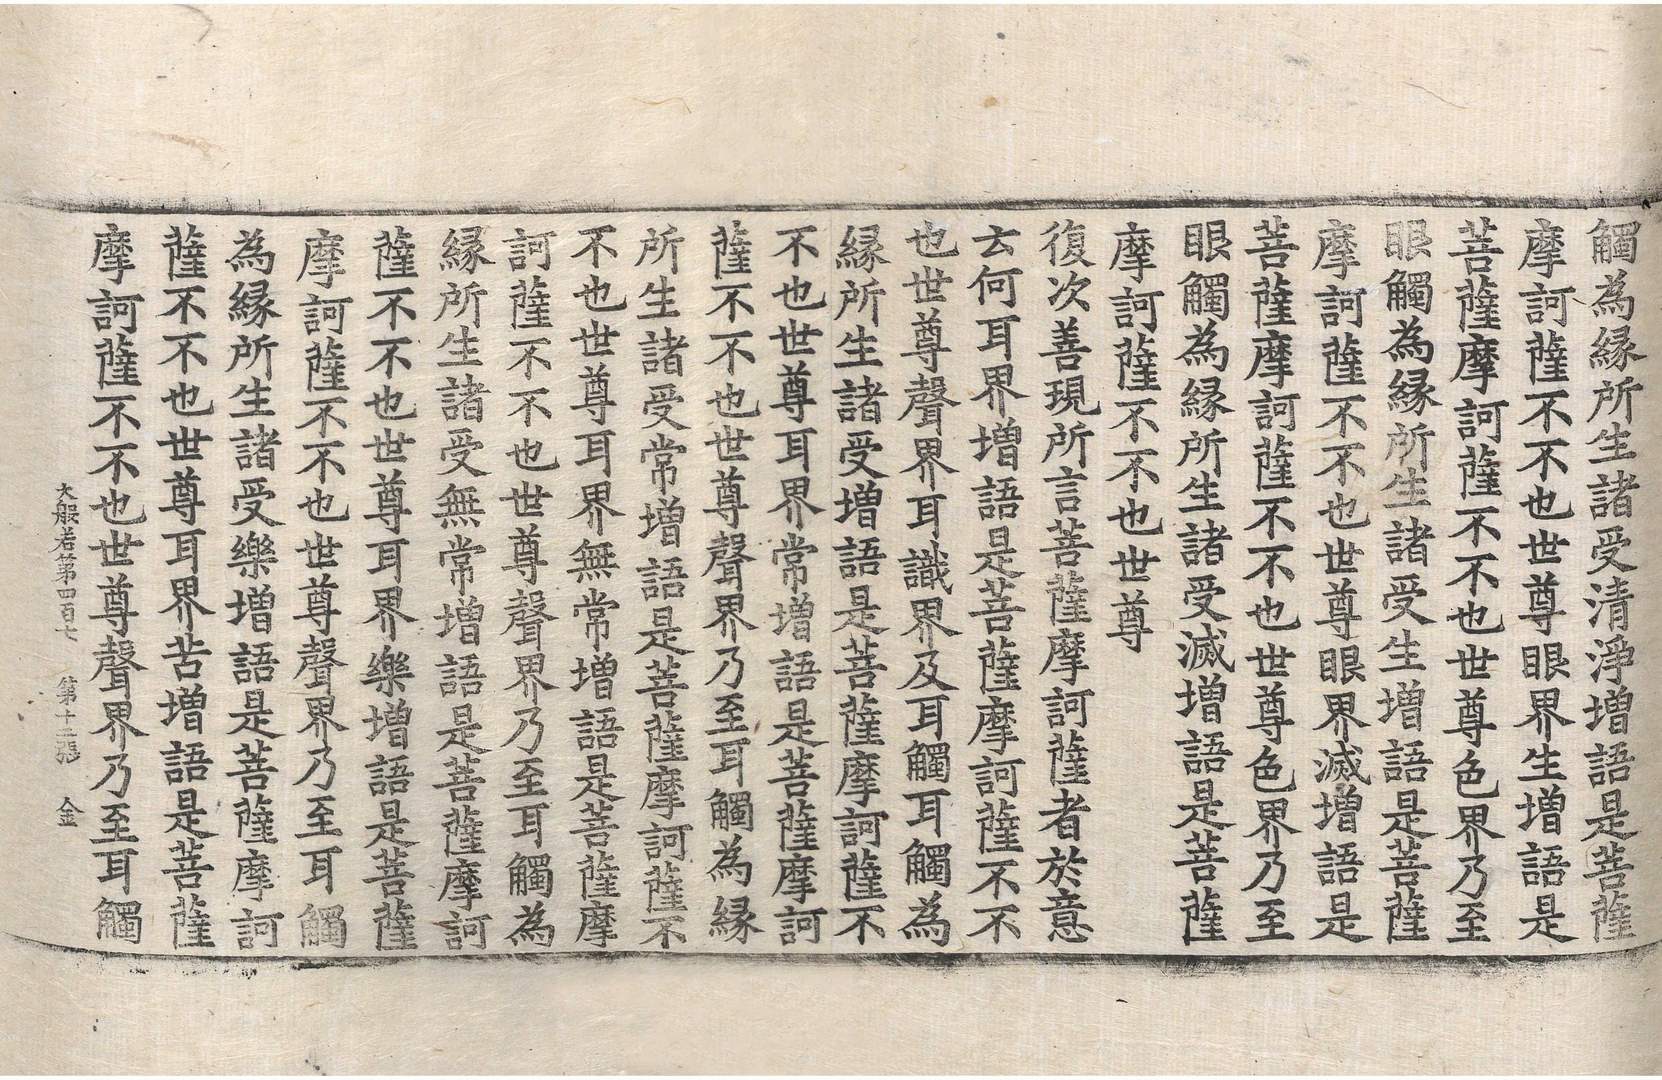 觸為緣所生諸受清淨增語是菩薩
摩訶薩不不也世尊眼界生增語是
菩薩摩訶薩不不也世尊色界乃至
眼觸為緣所生諸受生增語是菩薩
摩訶薩不不也世尊眼界滅增語是
菩薩摩訶薩不不也世尊色界乃至
眼觸為緣所生諸受滅增語是菩薩
摩訶薩不不也世尊
復次善現所言菩薩摩訶薩者於意
云何耳界增語是菩薩摩訶薩不不
也世尊聲界耳識界及耳觸耳觸為
緣所生諸受增語是菩薩摩訶薩不
不也世尊耳界常增語是菩薩摩訶
薩不不也世尊聲界乃至耳觸為緣
所生諸受常增語是菩薩摩訶薩不
不也世尊耳界無常增語是菩薩摩
訶薩不不也世尊聲界乃至耳觸為
緣所生諸受無常增語是菩薩摩訶
薩不不也世尊耳界樂增語是菩薩
摩訶薩不不也世尊聲界乃至耳觸
為緣所生諸受樂增語是菩薩摩訶
薩不不也世尊耳界苦增語是菩薩
摩訶薩不不也世尊聲界乃至耳觸
大般若第四百七 第十二張 金